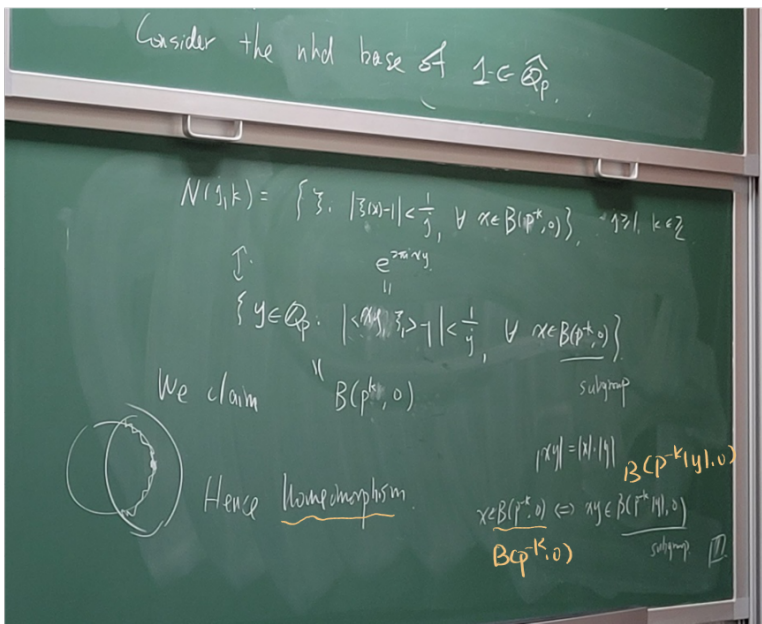 Consider the nhd base of 1 ∈ Q̂_p.
N(j,k) = { ξ: |ξ(x)-1| < 1/j, ∀ x ∈ B(p^k,0)}, j≥1, k∈Z
↕
e^{2πixy}
"
{ y ∈ Q_p: |<xy, ξ_1>-1| < 1/j, ∀ x ∈ B(p^{-k},0)}
"
subgroup
We claim B(p^k,0)
|xy| = |x|·|y|
B(p^{-k}|y|,0)
Hence homeomorphism.
x∈B(p^{-k},0) ⇔ xy ∈ B(p^{-k}|y|,0)
B(p^{-k},0)
subgroup